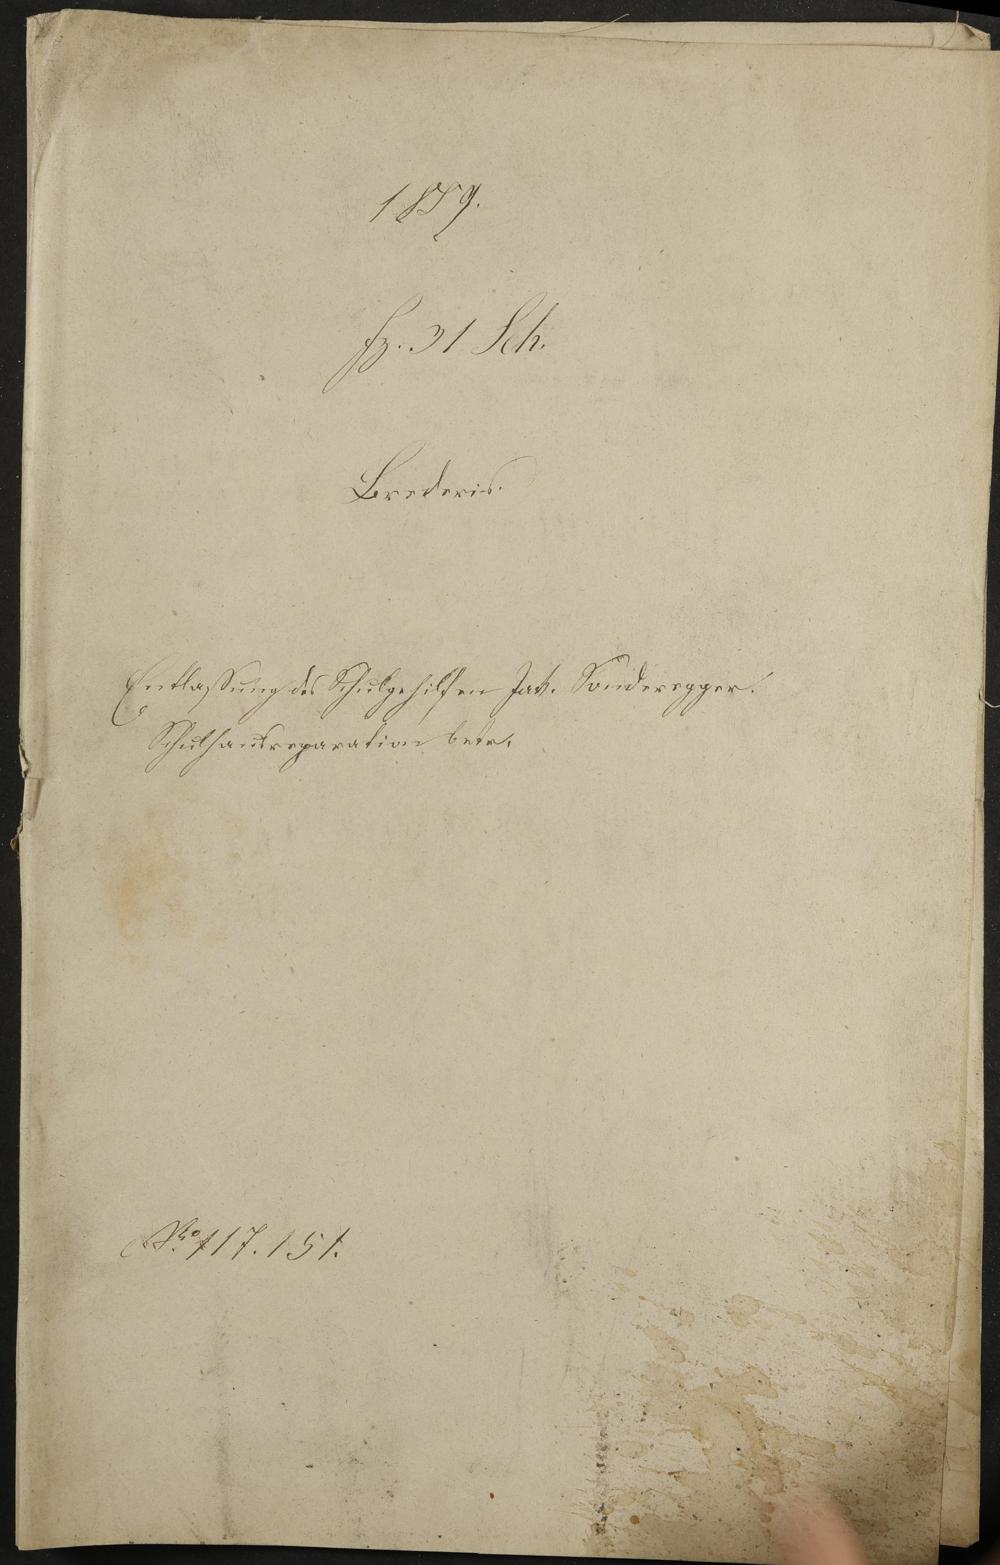 1859.
Fz. 31 Sch.
Brederis.
Entlassung des Schulgehilfen Jak. Sonderegger.
Schulhausreparation betr.
No. 117. 151.